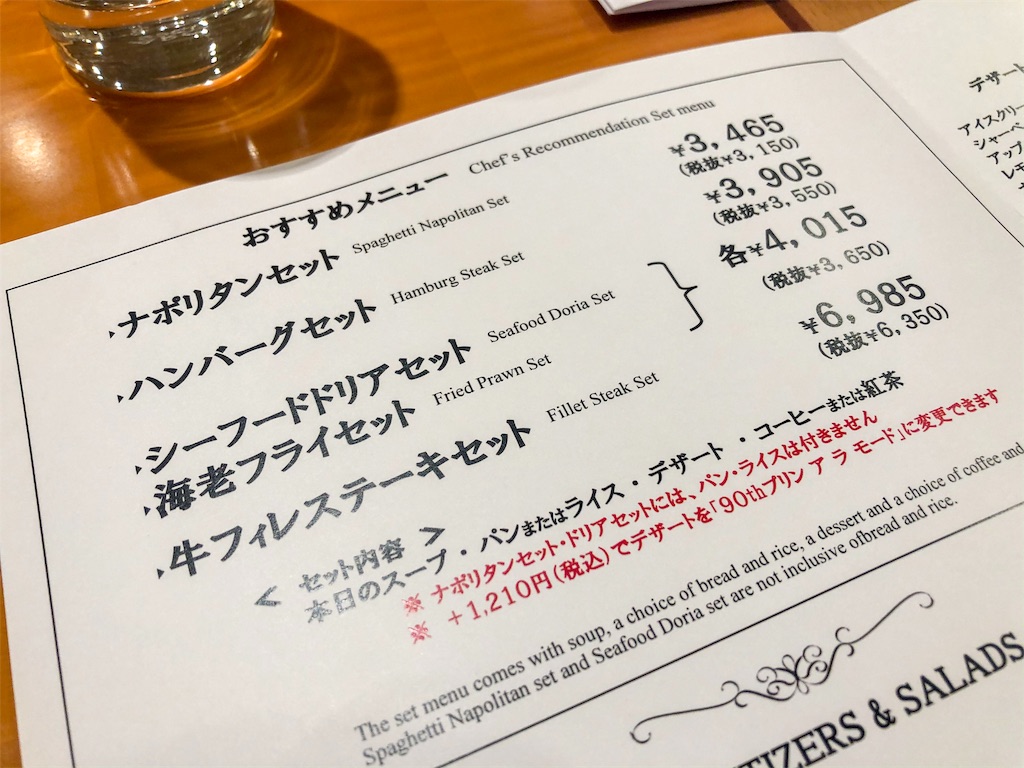 おすすめメニュー Chef's Recommendation Set menu
ナポリタンセット Spaghetti Napolitan Set ¥3,465
(税抜¥3,150)
ハンバーグセット Hamburg Steak Set ¥3,905
(税抜¥3,550)
シーフードドリアセット Seafood Doria Set
海老フライセット Fried Prawn Set
各¥4,015
(税抜¥3,650)
牛フィレステーキセット Fillet Steak Set ¥6,985
(税抜¥6,350)
< セット内容 >
本日のスープ・パンまたはライス・デザート・コーヒーまたは紅茶
※ナポリタンセット・ドリアセットには、パン・ライスは付きません
※+1,210円(税込)でデザートを「90thプリン ア ラ モード」に変更できます
The set menu comes with soup, a choice of bread and rice, a dessert and a choice of coffee and
Spaghetti Napolitan set and Seafood Doria set are not inclusive ofbread and rice.
TIZERS & SALADS
デザート
アイスクリー
シャーベ
アップ
レモ